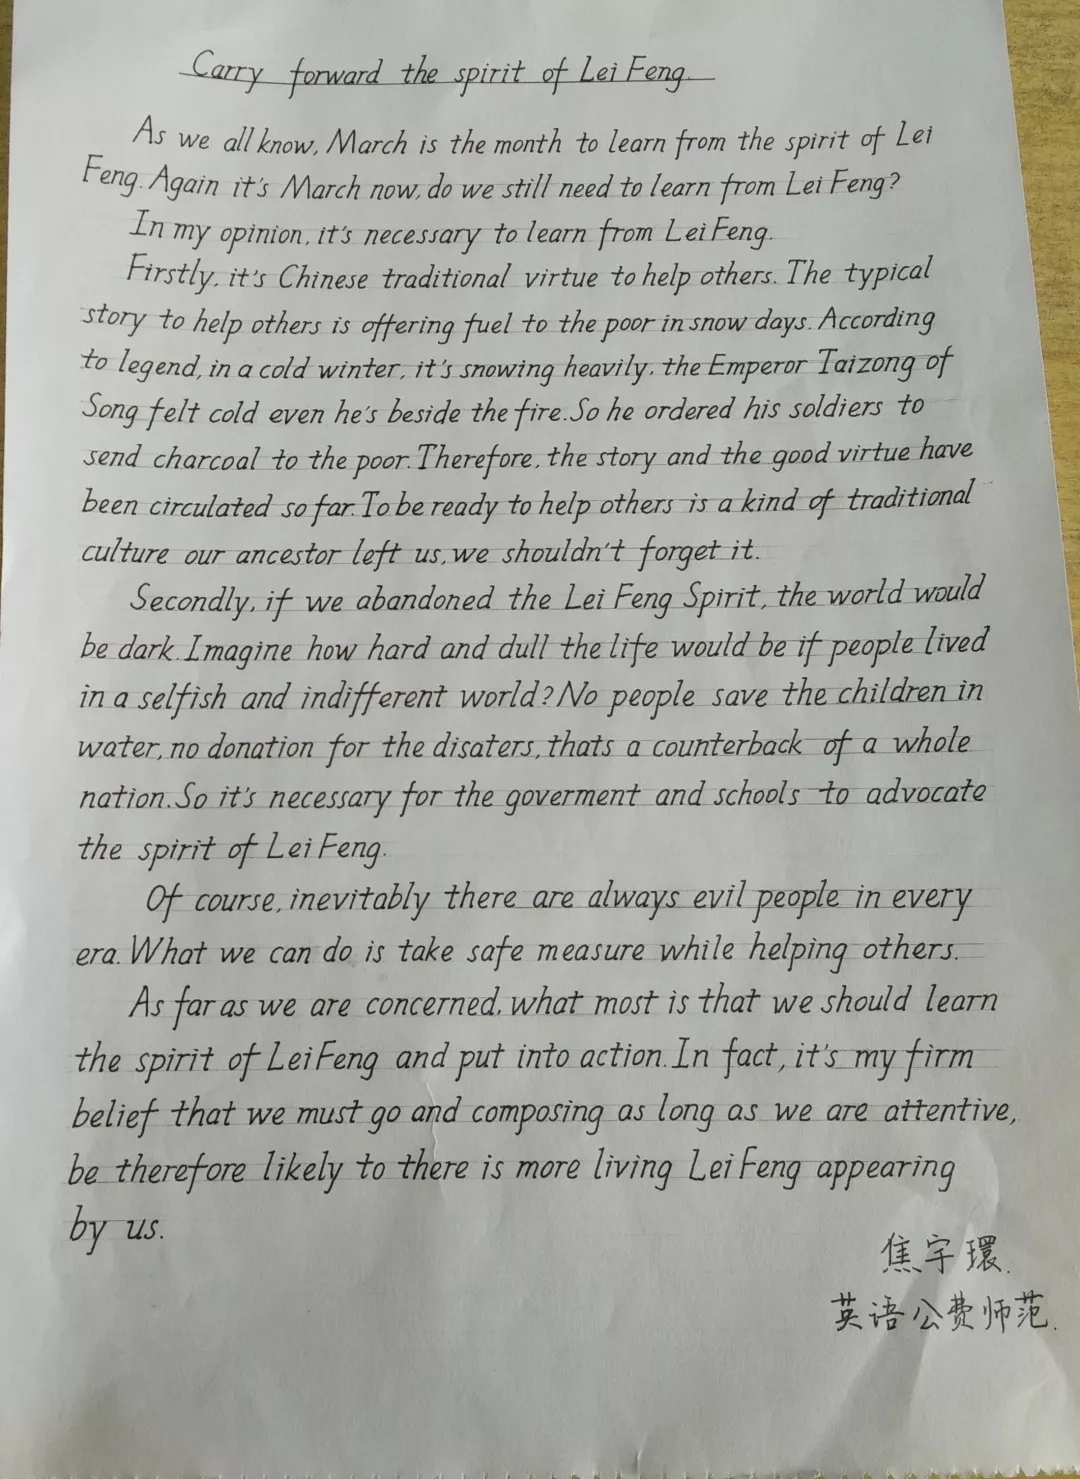 Carry forward the spirit of Lei Feng.
As we all know, March is the month to learn from the spirit of Lei
Feng. Again it's March now, do we still need to learn from Lei Feng?
In my opinion, it's necessary to learn from Lei Feng.
Firstly, it's Chinese traditional virtue to help others. The typical
story to help others is offering fuel to the poor in snow days. According
to legend, in a cold winter, it's snowing heavily, the Emperor Taizong of
Song felt cold even he's beside the fire. So he ordered his soldiers to
send charcoal to the poor. Therefore, the story and the good virtue have
been circulated so far. To be ready to help others is a kind of traditional
culture our ancestor left us, we shouldn't forget it.
Secondly, if we abandoned the Lei Feng Spirit, the world would
be dark. Imagine how hard and dull the life would be if people lived
in a selfish and indifferent world? No people save the children in
water, no donation for the disaters, thats a counterback of a whole
nation. So it's necessary for the goverment and schools to advocate
the spirit of Lei Feng.
Of course, inevitably there are always evil people in every
era. What we can do is take safe measure while helping others.
As far as we are concerned, what most is that we should learn
the spirit of Lei Feng and put into action. In fact, it's my firm
belief that we must go and composing as long as we are attentive,
be therefore likely to there is more living Lei Feng appearing
by us.
焦宇環.
英语公费师范.